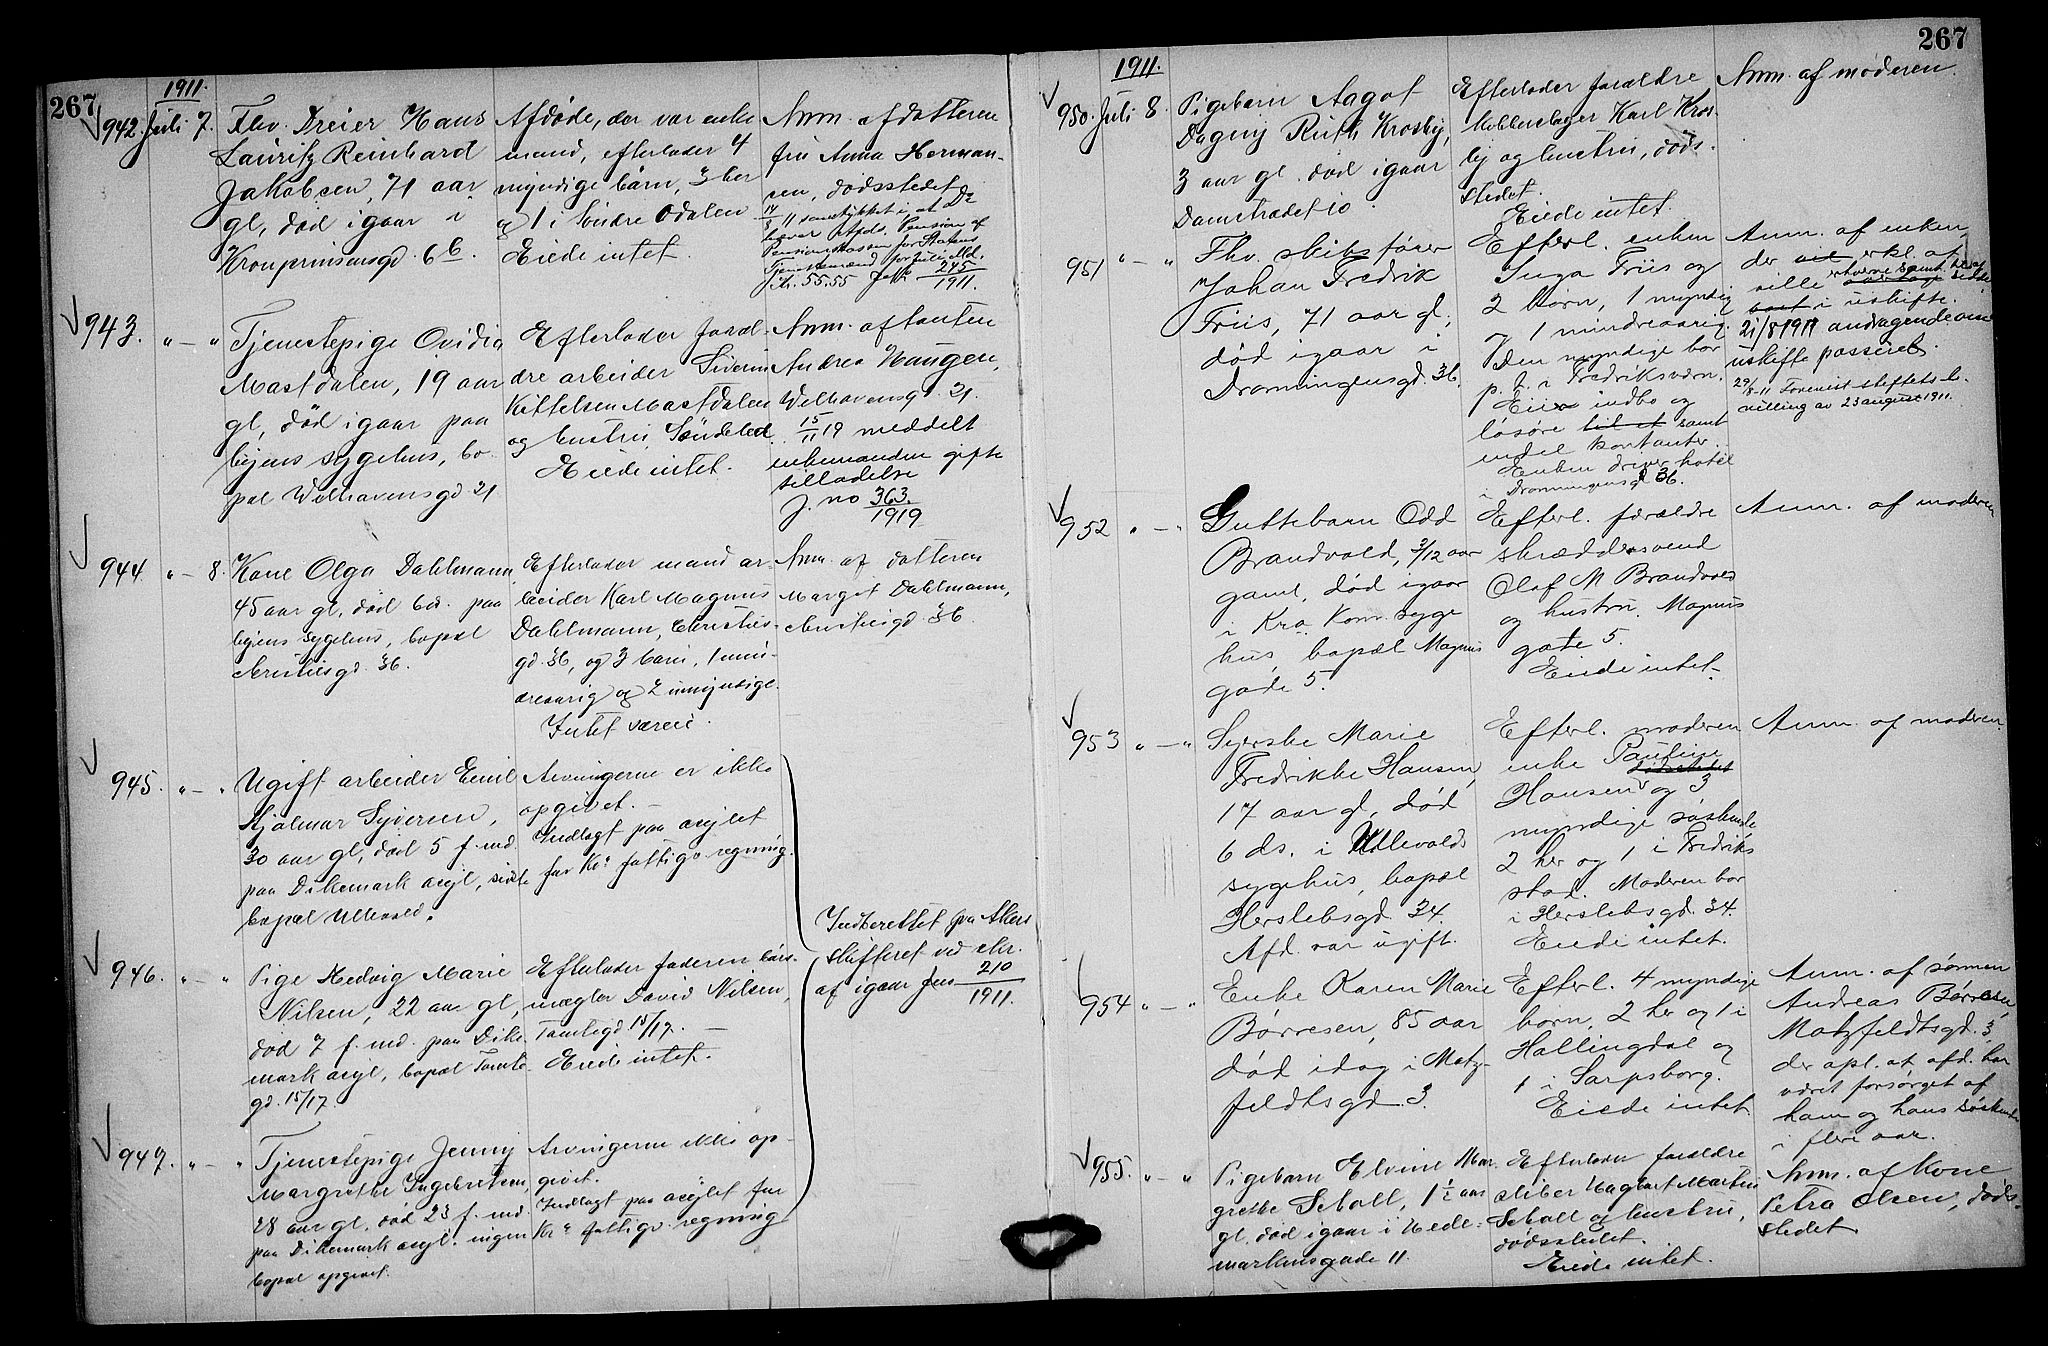 267
1911.
942. Juli 7. Fhv. Dreier Hans
Lauritz Reinhard
Jakobsen, 71 aar
gl, død igaar i
Kronprinsensgd. 6b.
Afdøde, der var enke
mand, efterlader 4
myndige børn, 3 her
og 1 i Søndre Odalen
Eiede intet.
Anm. af datteren
fru Anna Herman-
sen, dødsstedet
Pensionskassen for Statens
Jr. 55.55 Jnk 245/1911.
943. " — " Tjenestepige Ovidia
Mastdalen, 19 aar
gl, død igaar paa
byens sygehus, bo-
pæl Welhavensgd 21
Efterlader foræl-
dre arbeider Siverin
Kittelsen Mastdalen
og hustru, Søndeled.
Eiede intet.
Anm. af tanten
Andrea Haugen,
Welhavensgd. 21.
15/11 19 meddelt
enkemanden gifte
tilladelse
J. no 363/1919
944. " — 8. Kone Olga Dahlmann,
45 aar gl, død 6ds. paa
byens sygehus, bopæl
Christiesgd. 36.
Efterlader mand ar-
beider Karl Magnus
Dahlmann, Christies-
gd. 36, og 3 børn, 1 min-
dreaarig og 2 umyndige.
Intet særeie.
Anm. af datteren
Margit Dahlmann,
Christiesgd. 36.
945. " — " Ugift arbeider Emil
Hjalmar Syversen,
30 aar gl, død 5 f. md.
paa Dikemark asyl, sidste
bopæl Ullevold.
Arvingerne er ikke
opgivet. —
Indlagt paa asylet
for Kra fattigv. regning.
946. " — " Pige Hedvig Marie
Nilsen, 22 aar gl,
død 7 f. md. paa Dike-
mark asyl, bopæl Tomte-
gd. 15/17.
Efterlader faderen børs-
mægler David Nilsen,
Tomtegd 15/17. —
Eiede intet.
Indberettet fra Akers
skifteret ved skr.
af igaar Jno 210/1911.
947. " — " Tjenestepige Jenny
Margrethe Ingebretsen,
28 aar gl, død 23 f. md.
paa Dikemark asyl. ingen
bopæl opgivet.
Arvingerne ikke op-
givet.
Indlagt paa asylet for
Kra fattigv. regning
267
1911.
950. Juli 8. Pigebarn Aagot
Dagny Ruth Krosby,
3 aar gl. død igaar
Damstrædet 10
Efterlader forældre
Kobberslager Karl Kros-
by og hustru, døds-
stedet.
Eiede intet.
Anm. af moderen.
951 " — " Fhv. skibsfører
Johan Fredrik
Friis, 71 aar gl,
død igaar i
Dronningensgd. 36.
Efterl. enken
Inga Friis og
2 børn, 1 myndig
og 1 mindreaarig.
Den myndige bor
p. t. i Fredriksværn.
Eiede indbo og
løsøre samt
endel kontanter.
Enken driver hotel
i Dronningensgd 36.
Anm. af enken
der erkl. at
ville
i uskifte.
21/8 1911 andragende om
uskifte passeret.
29/8-11 Forevist skiftets be-
villing av 23 august 1911.
952 " — " Guttebarn Odd
Brandvold, 3/12 aar
gaml, død igaar
i Kra. Kom. syge
hus, bopæl Magnus
gade 5.
Efterl. forældre
skræddersvend
Olaf M Brandvold
og hustru. Magnus
gate 5.
Eiede intet.
Anm. af moderen
953 " — " Syerske Marie
Fredrikke Hansen,
17 aar gl, død
6 ds. i Ullevolds
sygehus, bopæl
Herslebsgd. 34.
Afd. var ugift.
Efterl. moderen
enke Pauline
Hansen og 3
myndige søskende
2 her og 1 i Fredriks
stad. Moderen bor
i Herslebsgd. 34.
Eiede intet.
Anm. af moderen.
954 " — " Enke Karen Marie
Børresen, 85 aar
død idag i Motz-
feldtsgd. 3.
Efterl. 4 myndige
børn, 2 her og 1 i
Hallingdal og
1 i Sarpsborg.
Eiede intet.
Anm. af sønnen
Andreas Børresen,
Motzfeldtsgd. 3,
der opl. at afd. har
været forsørget af
ham og hans søskende
i flere aar.
955. " — " Pigebarn Elvine Mar-
grethe Scholl, 1 1/2 aar
gl. død igaar i Hede-
markensgade 11.
Efterlader forældre
sliber Hagbart Morten
Scholl og hustru,
dødsstedet.
Eiede intet.
Anm. af Kone
Petra Olsen, døds-
stedet